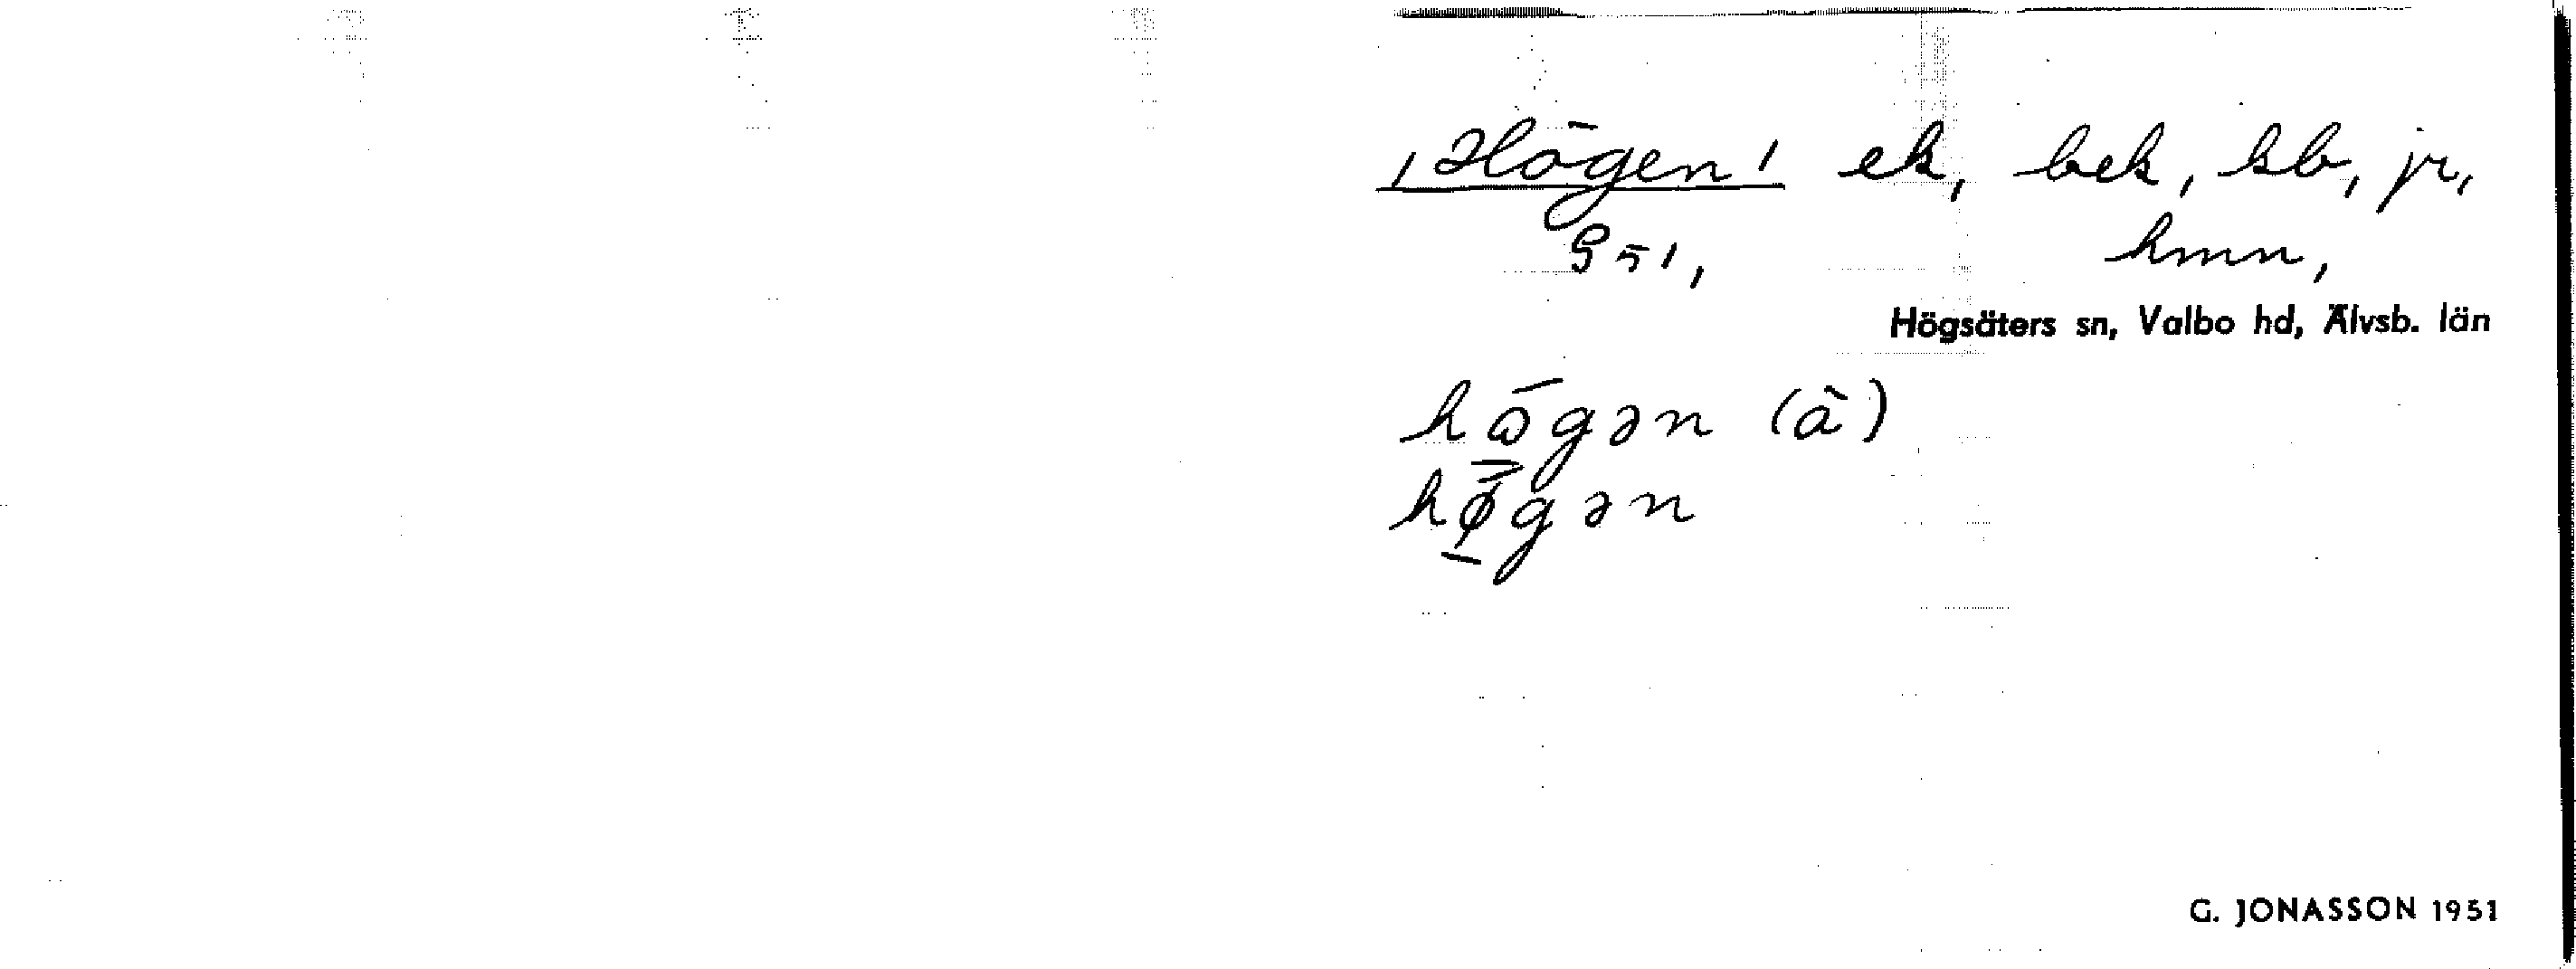 "Högen" ek, bek, kb, jr,
951, hmn,
Högsäters sn, Valbo hd, Älvsb. län
hōgən (à)
hø̄gən
G. JONASSON 1951